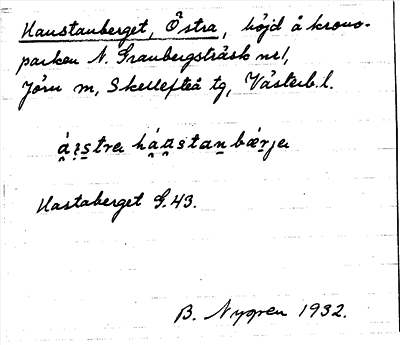 Haustanberget, Östra, höjd å krono-
parken N. Granbergsträsk nr 1,
Jörn sn, Skellefteå tg, Västerb. l.
Hastaberget G. 43.
B. Nygren 1932.